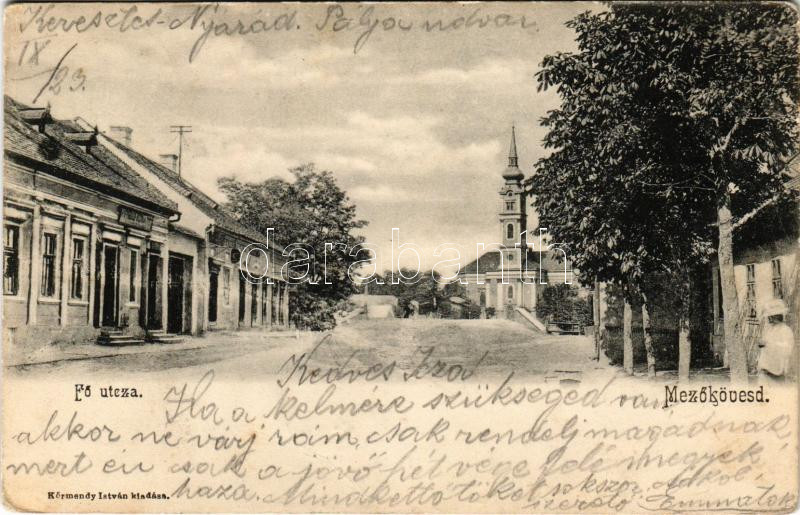 Keresztes-Nyarád. Pálja udvar.
IX/23.
darabanth.com
Fő utcza.
Mezőkövesd.
Kedves Iza
Ha a kelmére szükséged van,
akkor ne várj rám, csak rendelj magadnak,
mert én csak a jövő hét vége felé megyek
haza. Mindkettőtöket sokszor
szerető Emmatok
Körmendy István kiadása.